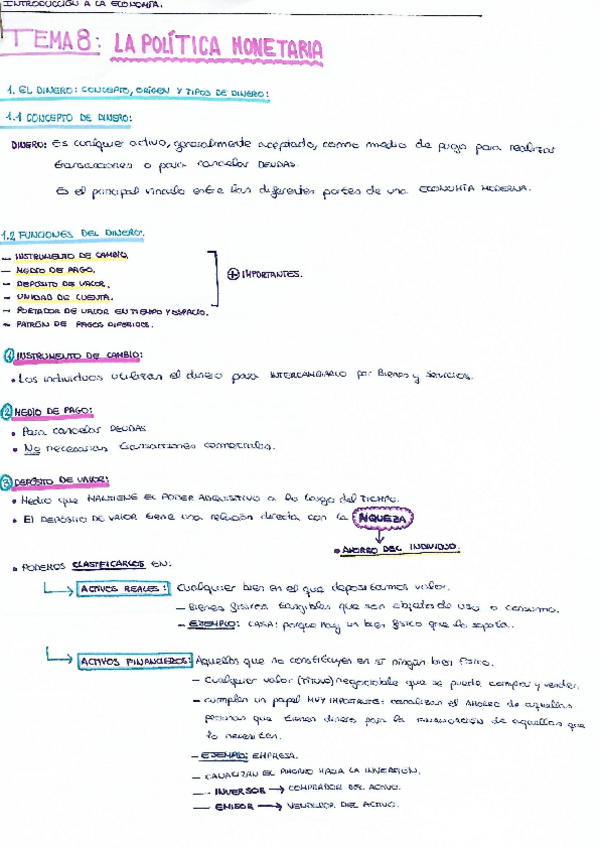 INTRODUCCIÓN A LA ECONOMÍA.
TEMA 8: LA POLÍTICA MONETARIA
1. EL DINERO: CONCEPTO, ORIGEN Y TIPOS DE DINERO:
1.1 CONCEPTO DE DINERO:
DINERO: Es cualquier activo, generalmente aceptado, como medio de pago para realizar
transacciones o para cancelar DEUDAS.
Es el principal vínculo entre las diferentes partes de una ECONOMÍA MODERNA.
1.2 FUNCIONES DEL DINERO:
- INSTRUMENTO DE CAMBIO.
- MEDIO DE PAGO.
- DEPÓSITO DE VALOR.
- UNIDAD DE CUENTA.
⊕ IMPORTANTES.
- PORTADOR DE VALOR EN TIEMPO Y ESPACIO.
- PATRÓN DE PAGOS DIFERIDOS.
① INSTRUMENTO DE CAMBIO:
• Los individuos utilizan el dinero para INTERCAMBIARLO por Bienes y Servicios.
② MEDIO DE PAGO:
• Para cancelar DEUDAS
• No necesarias transacciones comerciales.
③ DEPÓSITO DE VALOR:
• Medio que MANTIENE EL PODER ADQUISITIVO a lo largo del TIEMPO.
• El DEPÓSITO DE VALOR tiene una relación directa con la RIQUEZA
• AHORRO DEL INDIVIDUO.
• PODEMOS CLASIFICARLOS EN:
ACTIVOS REALES: Cualquier bien en el que depositamos valor.
- Bienes físicos tangibles que son objetos de uso o consumo.
- EJEMPLO: CASA: porque hay un bien físico que lo soporta.
ACTIVOS FINANCIEROS: Aquellos que no constituyen en sí ningún bien físico.
- Cualquier valor (TÍTULO) negociable que se puede comprar y vender.
- cumplen un papel MUY IMPORTANTE: canalizan el AHORRO de aquellas
personas que tienen dinero para la FINANCIACIÓN de aquellas que
lo necesitan.
- EJEMPLO: EMPRESA.
- CANALIZAN EL AHORRO HACIA LA INVERSIÓN.
- INVERSOR → COMPRADOR DEL ACTIVO.
- EMISOR → VENDEDOR DEL ACTIVO.